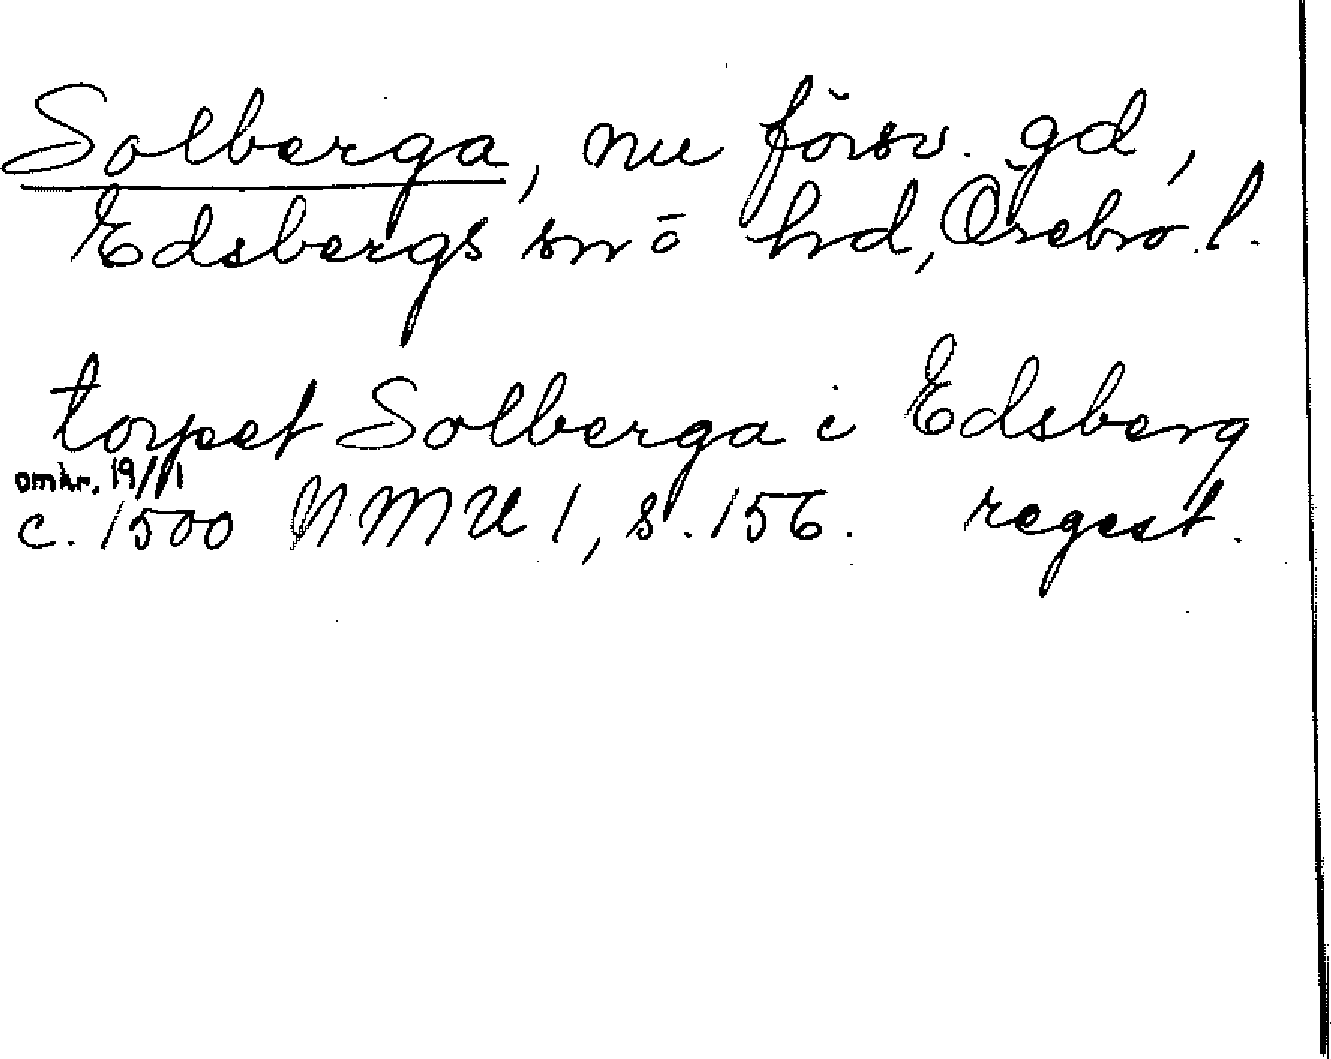 Solberga, nu försv. gd,
Edsbergs sn ö hd, Örebro l.
torpet Solberga i Edsberg
omkr. 19/11
c. 1500 NMU 1, s. 156. regest.